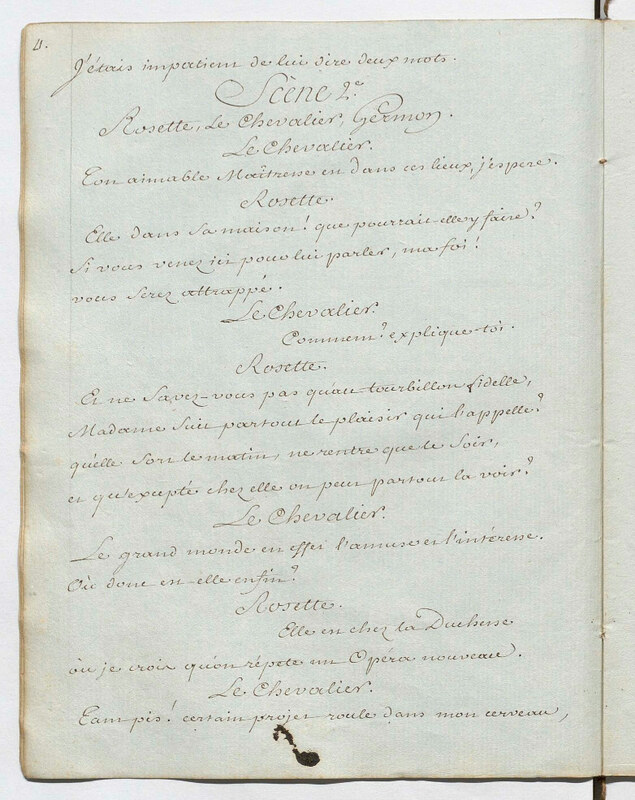 4.
J'étais impatient de lui dire deux mots.
Scène 2e
Rosette, Le Chevalier, Germon.
Le Chevalier.
Ton aimable Maîtresse est dans ces lieux, j'espere.
Rosette.
Elle dans sa maison! que pourrait-elle y faire?
Si vous venez ici pour lui parler, ma foi!
vous serez attrappé.
Le Chevalier.
Comment? explique-toi.
Rosette.
Et ne savez-vous pas qu'au tourbillon fidelle,
Madame suit partout le plaisir qui l'appelle?
qu'elle sort le matin, ne rentre que le soir,
et qu'excepté chez elle on peut partout la voir?
Le Chevalier.
Le grand monde en effet l'amuse et l'intéresse.
Où donc est-elle enfin?
Rosette.
Elle est chez la Duchesse
où je crois qu'on répete un Opéra nouveau.
Le Chevalier.
Tant pis! certain projet roule dans mon cerveau,